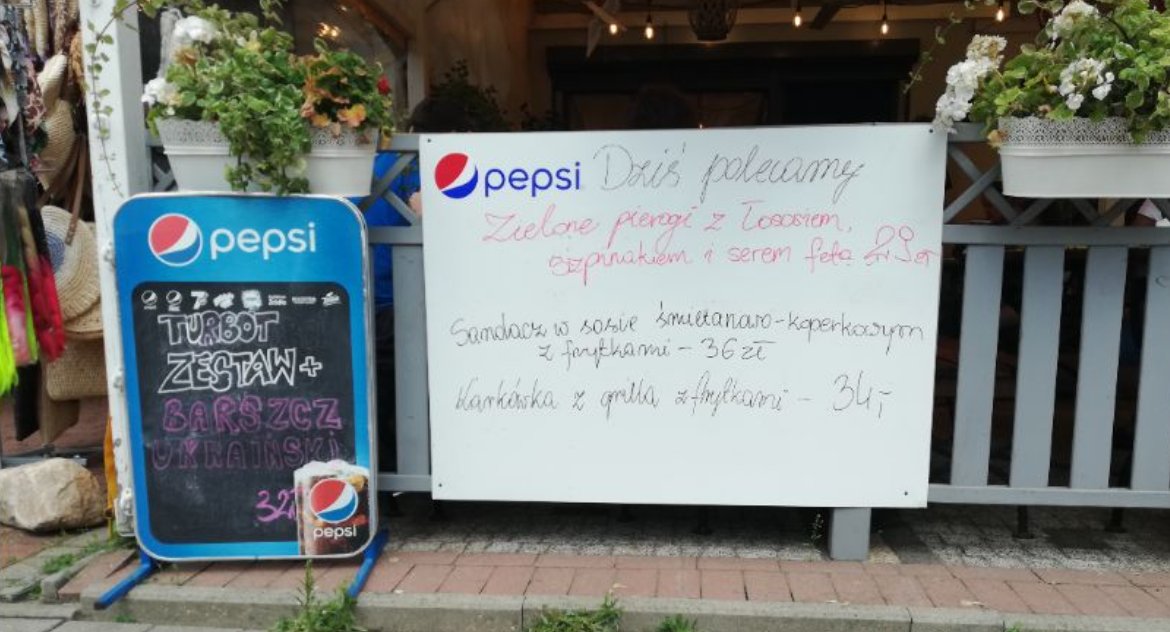 pepsi
TURBOT
ZESTAW +
BARSZCZ
UKRAIŃSKI
pepsi
pepsi Dziś polecamy
Zielone pierogi z Łososiem,
szpinakiem i serem feta 29zł
Sandacz w sosie śmietanowo-koperkowym
z frytkami - 36 zł
Karkówka z grilla z frytkami - 34,-